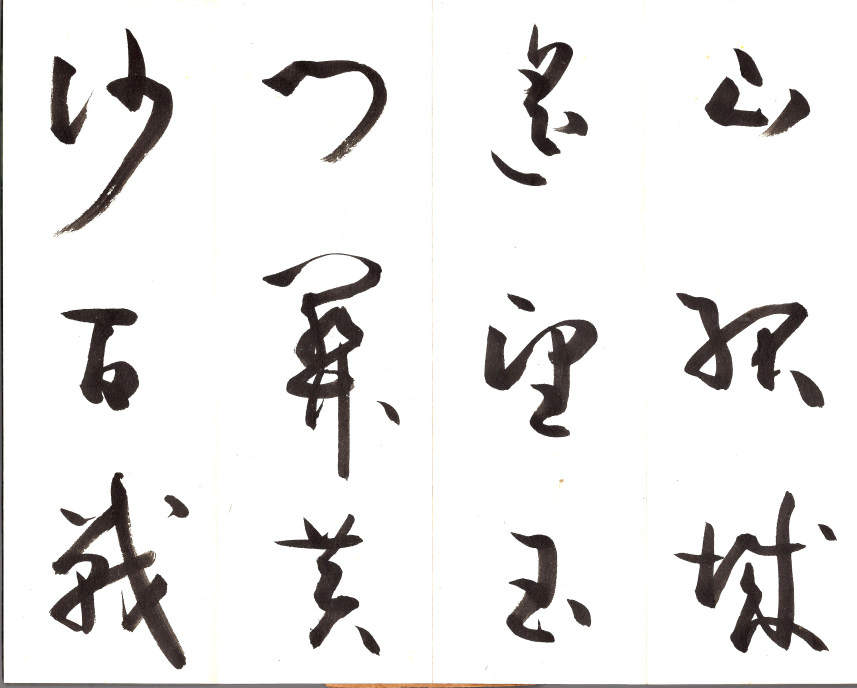 山孤城
遥望玉
门關黄
沙百戦